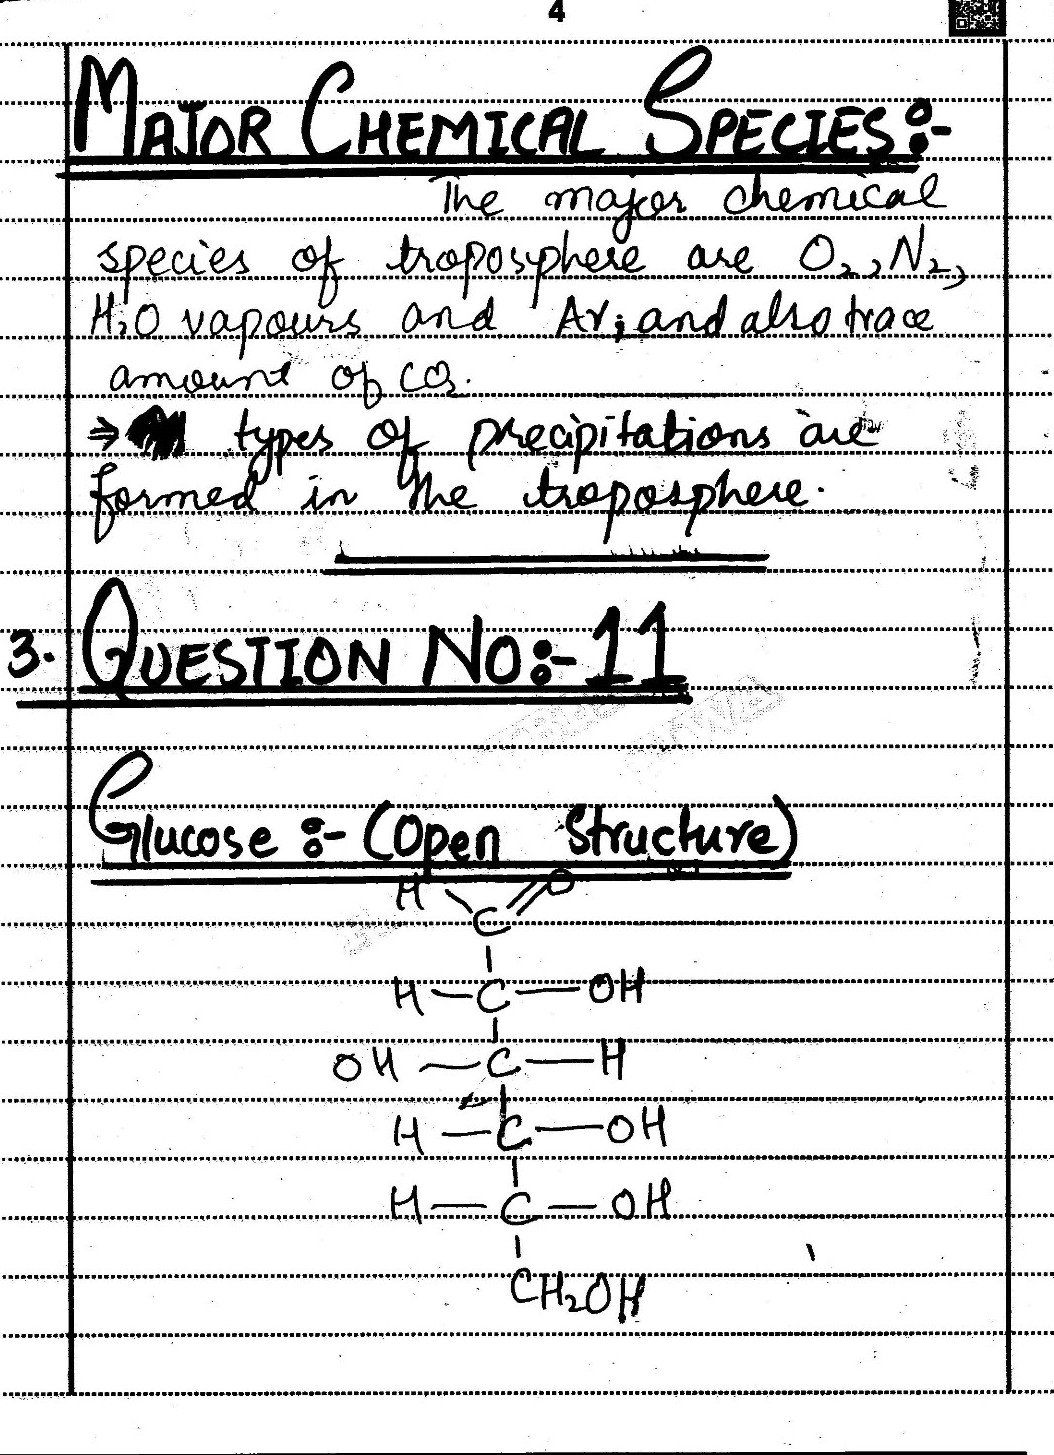 4
MAJOR CHEMICAL SPECIES:-
The major chemical
species of troposphere are O₂, N₂,
H₂O vapours and Ar; and also trace
amount of CO₂.
⇒ types of precipitations are
formed in the troposphere.
3. QUESTION NO:- 11
Glucose :- (Open Structure)
H O
C
H — C — OH
OH — C — H
H — C — OH
H — C — OH
CH₂OH